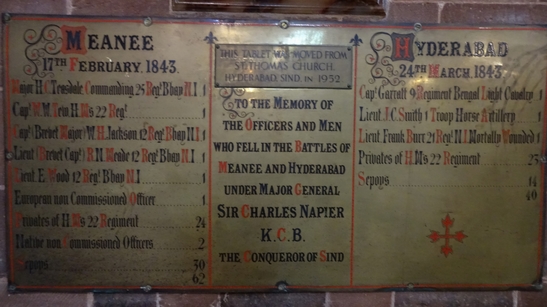 MEANEE
17TH FEBRUARY. 1843.
Major H.C. Teesdale Commanding 25 Regt Bbay N.I 1
Capt W.M. Tein H.M's 22 Regt 1
Capt (Brevet Major) M.H. Jackson 12 Regt Bbay N.I 1
Lieut (Brevet Capt) R.N. Meade 12 Regt Bbay N.I 1
Lieut E. Wood 12 Regt Bbay N.I 1
European non Commissioned Officer 1
Privates of H.M's 22 Regiment 24
Native non Commissioned Officers 2
Sepoys 30
62
THIS TABLET WAS MOVED FROM
ST THOMAS CHURCH,
HYDERABAD, SIND, IN 1952
TO THE MEMORY OF
THE OFFICERS AND MEN
WHO FELL IN THE BATTLES OF
MEANEE AND HYDERABAD
UNDER MAJOR GENERAL
SIR CHARLES NAPIER
K.C.B.
THE CONQUEROR OF SIND
HYDERABAD
24TH MARCH. 1843.
Capt Garrett 9 Regiment Bengal Light Cavalry 1
Lieut J.C. Smith 1 Troop Horse Artillery 1
Lieut Frank Burr 21 Regt N.I Mortally Wounded 1
Privates of H.M's 22 Regiment 23
Sepoys 14
40